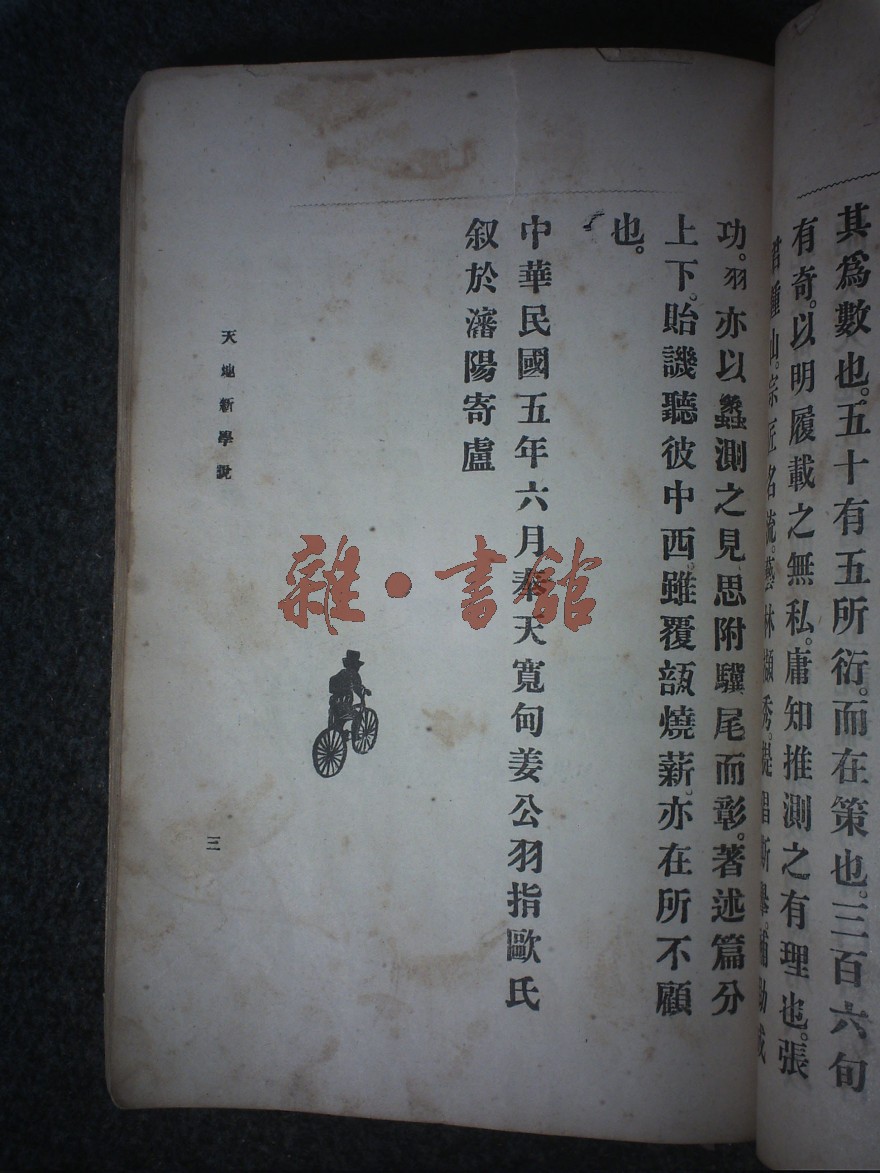 其爲數也。五十有五所衍。而在策也。三百六旬
有奇。以明履載之無私。庸知推測之有理也。張
宗匠名流。藝林
功。羽亦以蠡測之見。思附驥尾而彰。著述篇分
上下。貽譏聽彼中西。雖覆瓿燒薪。亦在所不顧
也。
中華民國五年六月奉天寬甸姜公羽指歐氏
叙於瀋陽寄盧
天地新學說
三
雜·書館